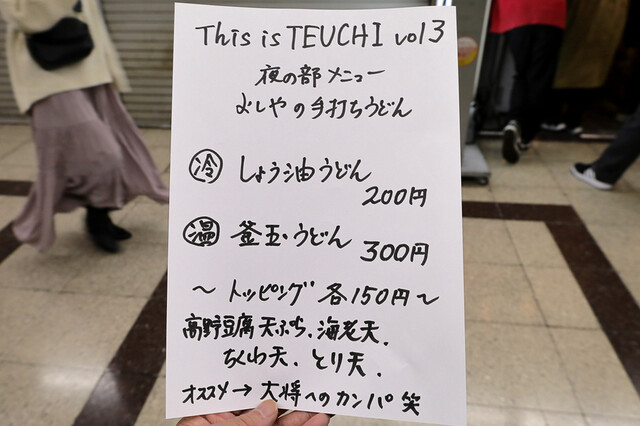 This is TEUCHI vol3
夜の部メニュー
よしやの手打ちうどん
冷 しょう油うどん
200円
温 釜玉うどん 300円
～トッピング 各150円～
高野豆腐天ぷら、海老天、
ちくわ天、とり天、
オススメ→大将へのカンパ笑